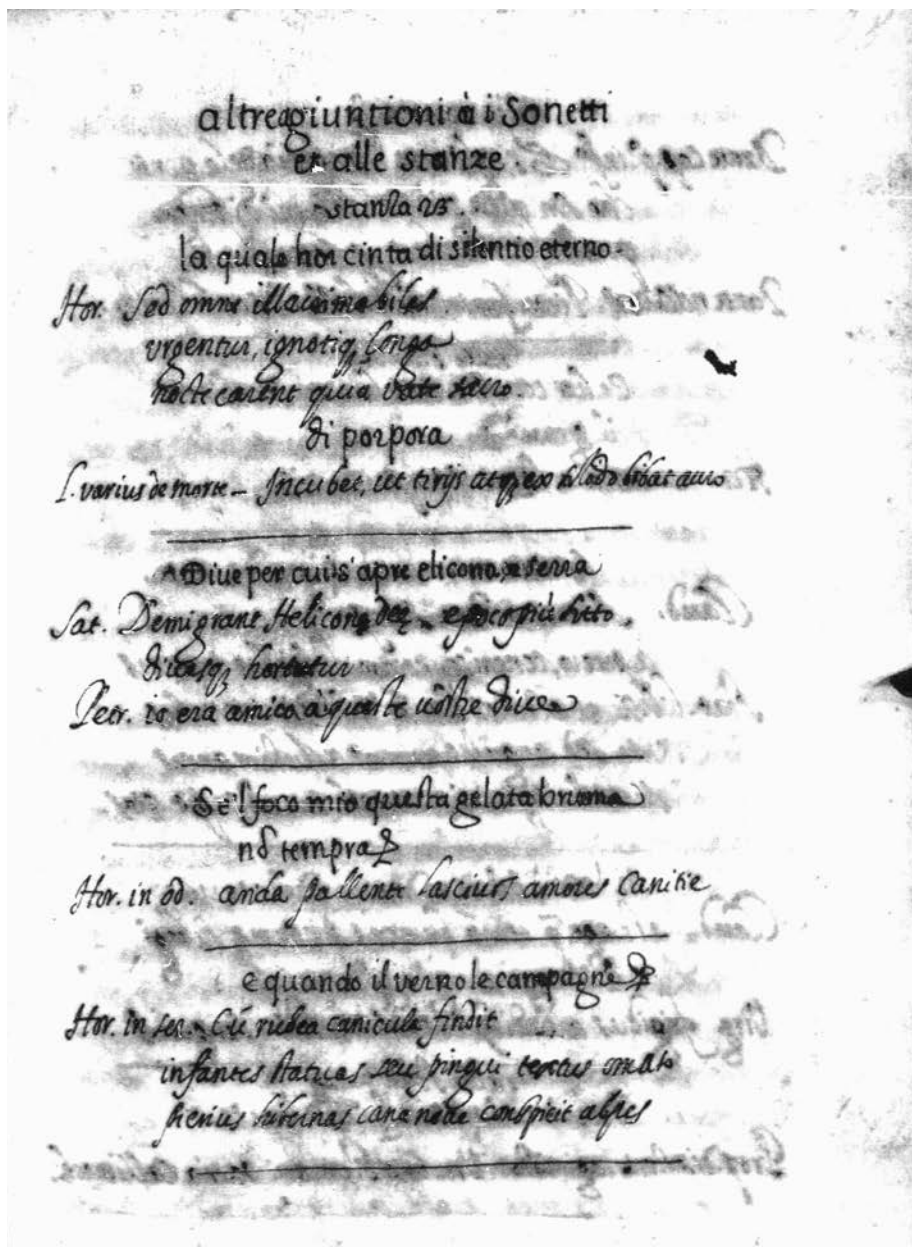 altre agiuntioni à i Sonetti
et alle stanze.
stanza 25.
la quale hor cinta di silentio eterno.
Hor. Sed omnes illacrimabiles
urgentur, ignotiq; longa
nocte carent quia vate sacro.
di porpora
L. varius de morte - Incubet, ut tirijs atq; ex solido bibat auro
Dive per cui s'apre elicona, e serra
Sat. Demigrant Helicone deę. e poco più sotto.
divasq; hortatur
Petr. io era amico à queste vostre dive
Se'l foco mio questa gelata bruma
nō tempra
Hor. in od. arida pellente lascivos amores canitie
e quando il verno le campagne
Hor. in ser. Cū rubea canicula findit
infantes statuas seu pingui tentus omaso
furius hibernas cana nive conspicit alpes